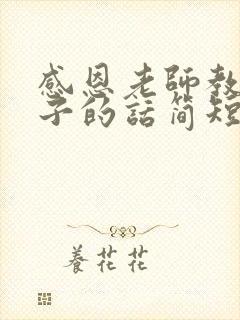 感恩老師教
子的話简短
養花花